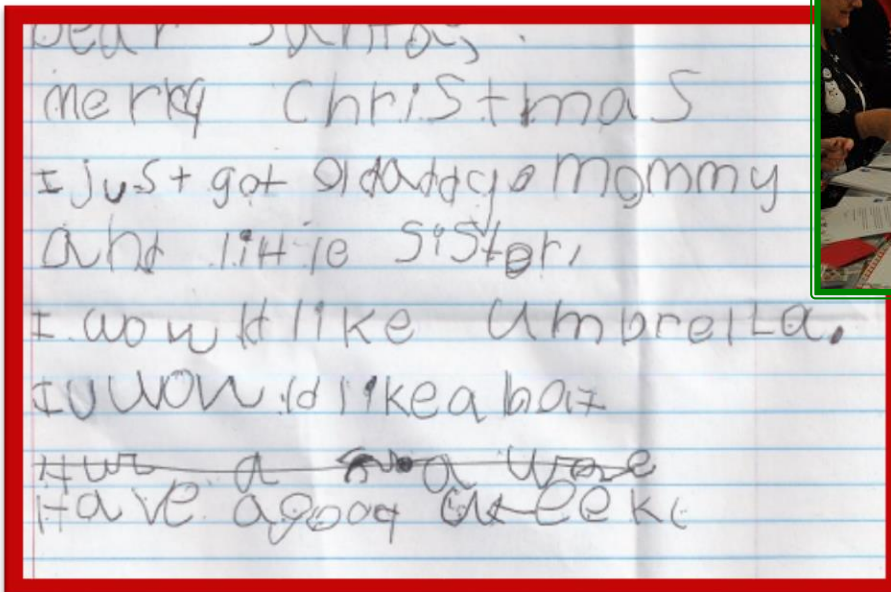 Dear Santa,
Merry Christmas
I just got a daddy a mommy
and little Sister,
I would like Umbrella.
I would like a
Have a good week